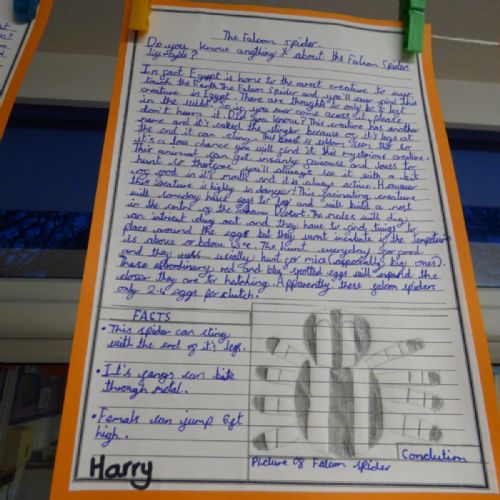 The Falcon spider.
Do you know anything about the Falcon Spiders
life style?
In fact Egypt is home to the rarest creature to ever
touch the Earth. The Falcon Spider and you'll ever find this
creature in Egypt. There are thought to only be
in the wild. So if you ever come across a please
don't harm it. Did you know? This creature has another
name and it's called the stingler because of it's legs at
the end it can sting. This breed is seldom seen so
it's a low chance you will find it this mysterious creature.
this animal can get insanly and loves to
hunt so therefore you'll always see it with a bit
of food in it's mouth and it is always active. However
this creature is highly in danger! This fascinating creature
will someday have eggs to lay and will build a nest
in the of the Sahara Desert. The males will dig
an intricate dug out and they have to find twigs to
place around the eggs but they wont incubate if the tempature
is above or bdow 45°e. The hunt everyday for food
and they usually hunt for mice (especially big ones).
These red and blue spotted eggs will expand the
closer they are to hatching. Apparently these falcon spiders
only 2-4 eggs per clutch.
FACTS
• This spider can sting
with the end of it's legs.
• It's fangs can bite
through metal.
• Femals can jump 6ft
high.
Harry
Picture of Falcon spider
Conclution